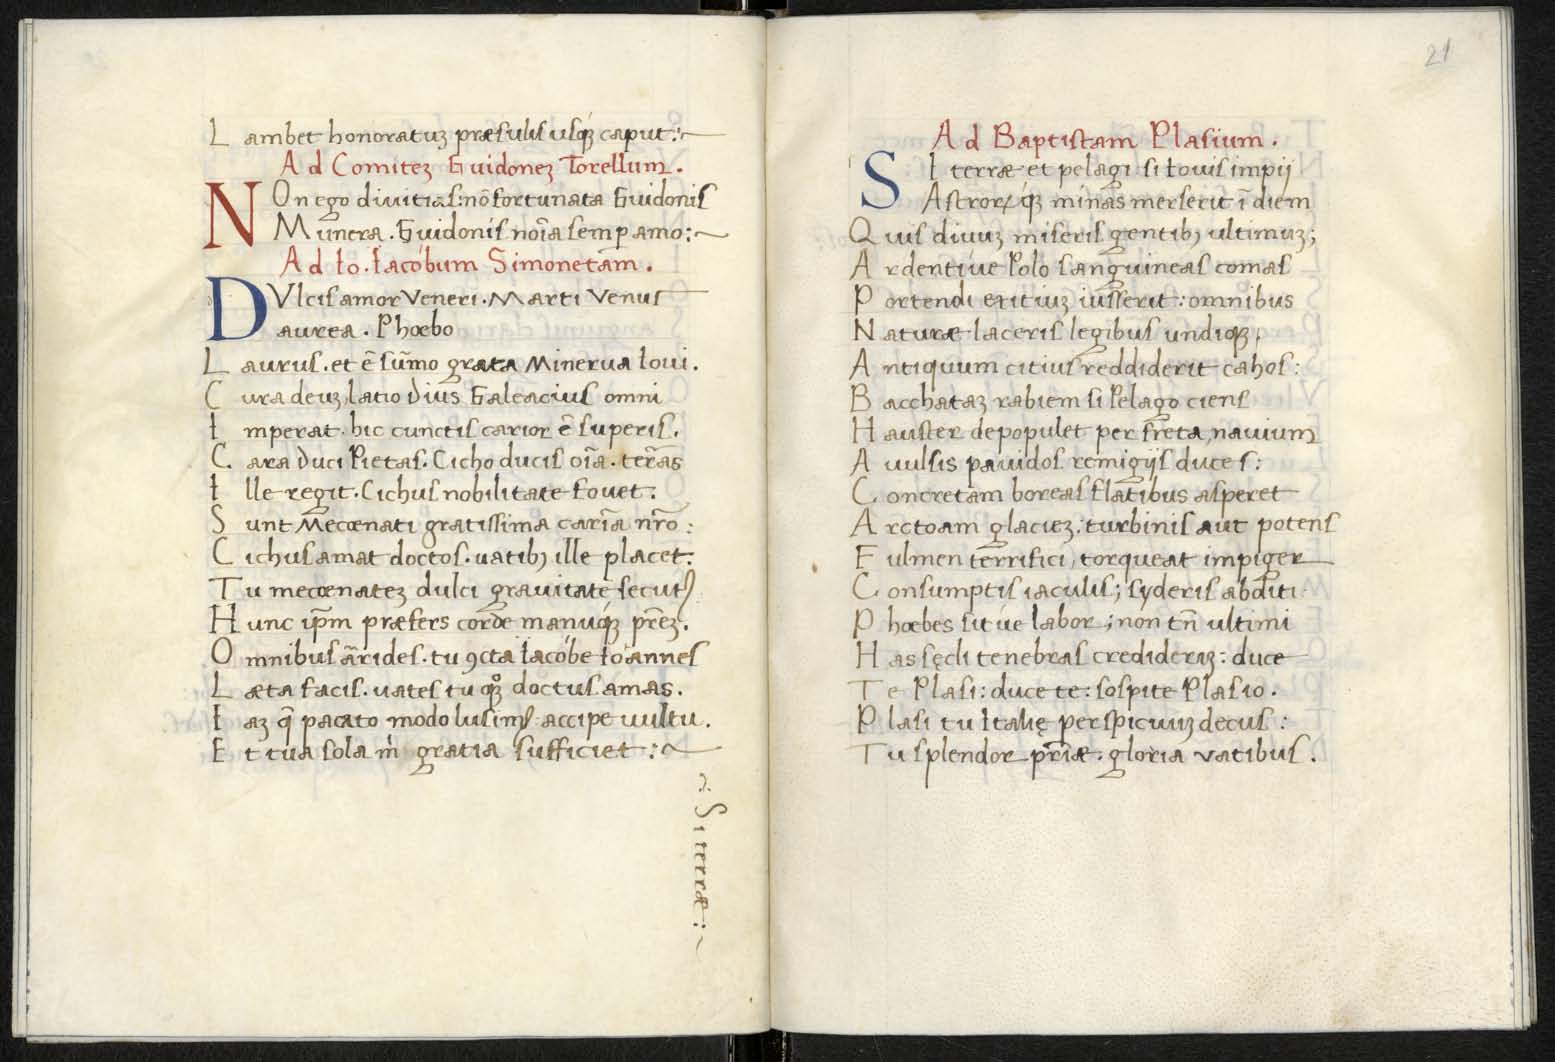 Lambet honoratuʒ præsulis usq́ʒ caput:~
Ad Comiteʒ Guidoneʒ Torellum.
NOn ego diuitias: nō fortunata Guidonis
Munera. Guidonis noīa semp amo:~
Ad Io. Iacóbum Simonetam.
DVlcis amor Veneri. Marti Venus
aurea. Phœbo
Laurus. et ē sūmo grata Minerua Ioui.
Cura deuʒ, latio Dius Galeacius omni
Imperat. hic cunctis carior ē superis.
Cara Duci Pietas. Cicho ducis oīa. terras
Ille regit. Cichus nobilitate fouet.
Sunt Mecœnati gratissima carīa nr̄o:
Cichus amat doctos. uatibꝫ ille placet.
Tu mecœnateʒ dulci grauitate secutꝰ
Hunc ip̄m præfers corde manuq́ʒ pr̄eʒ.
Omnibus ār̄ides. tu ꝯcta Iacóbe Ioannes
Læta facis. uates tu qʒ doctus amas.
Iaʒ q̄ pacato modo lusimꝰ accipe uultu.
Et tua sola m̄ gratia sufficiet:~
Si terræ:~
21
Ad Baptistam Plasium.
SI terræ et pelagi si Iouis impij
Astrorꝝ q́ʒ minas merserit ī diem
Quis diuuʒ miseris gentibꝫ ultimuʒ;
Ardentiue Polo sanguineas comas
Portendi exitiuʒ iusserit: omnibus
Naturæ laceris legibus undiqʒ,
Antiquum citius reddiderit cahos:
Bacchataʒ rabiem si Pelago ciens
Hauster depopulet per freta, nauium
Auulsis pauidos remigijs duces:
Concretam boreas flatibus asperet
Arctoam glacieʒ: turbinis aut potens
Fulmen terrifici, torqueat impiger
Consumptis iaculis; syderis abditi
Phœbes sit úe labor; non tn̄ ultimi
Has sęcli tenebras crediderīʒ: duce
Te Plasi: duce te: sospite Plasio.
Plasi tu Italię perspicuuʒ decus:
Tu splendor pr̄iæ. gloria vatibus.